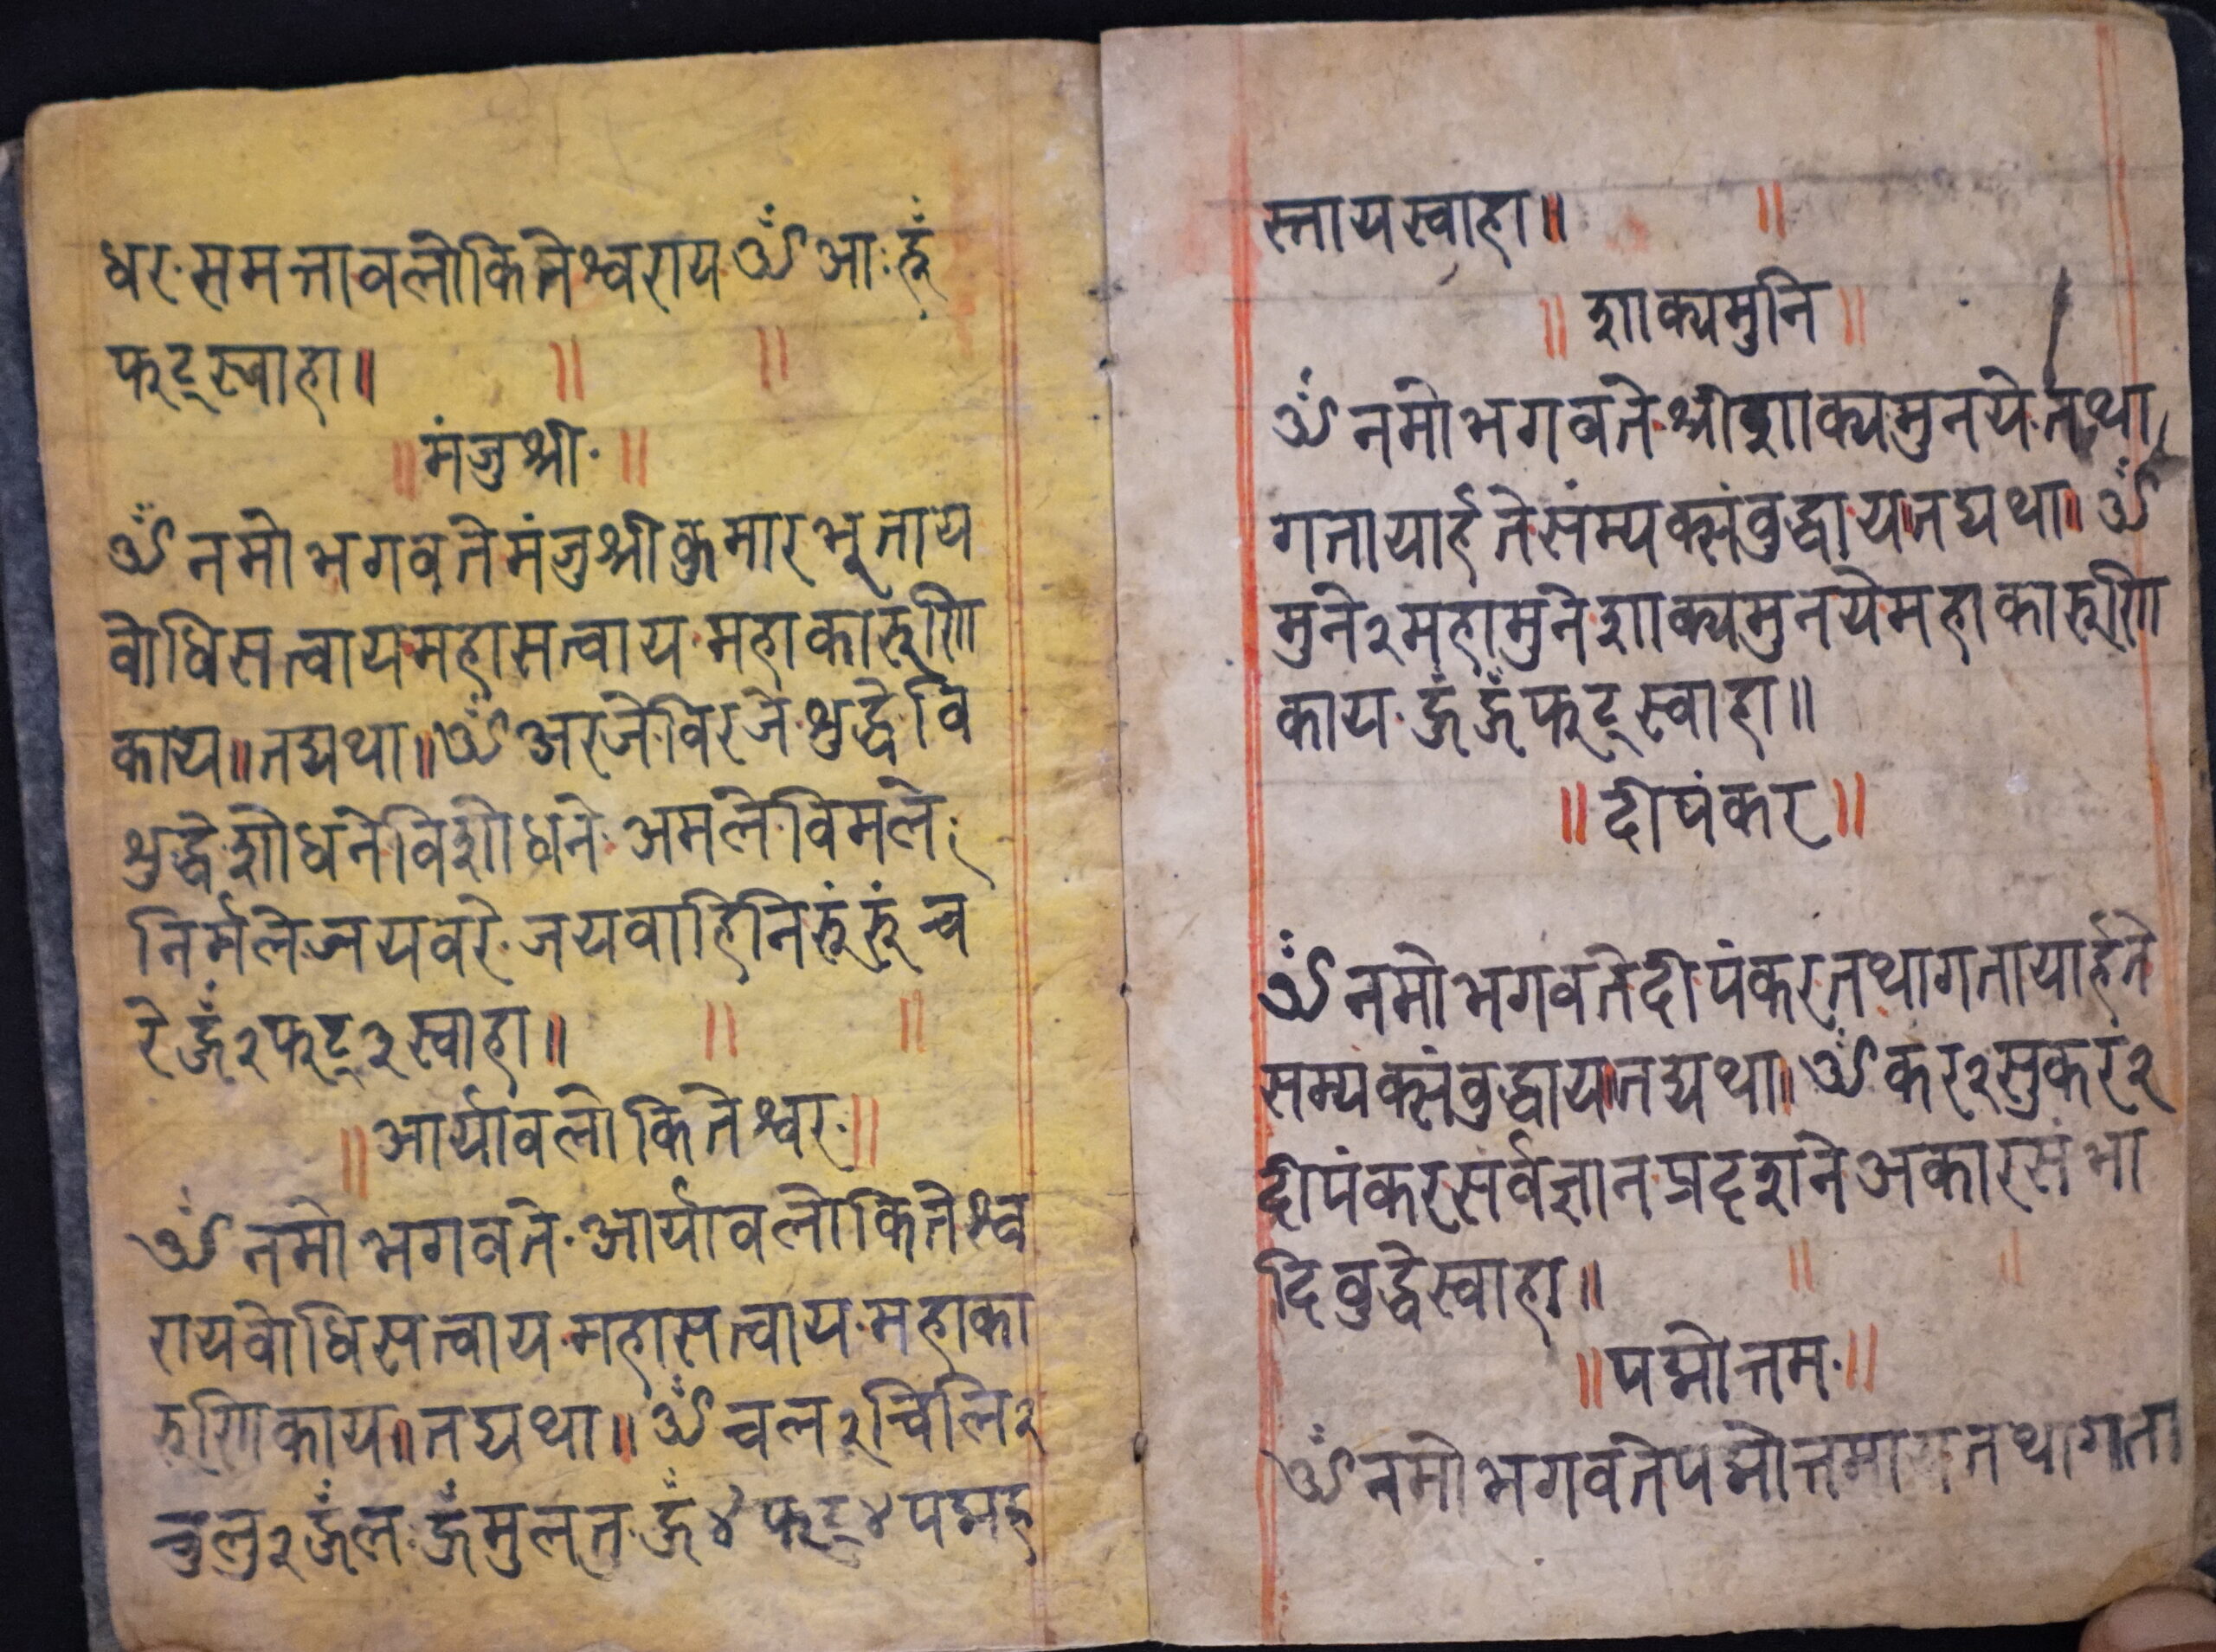 धर·समन्तावलोकितेश्वराय ॐ आः हूँ
फट् स्वाहा॥ ॥ ॥
॥ मंजुश्री· ॥
ॐ नमो भगवते मंजुश्रीकुमारभूताय
वोधिसत्वाय·महासत्वाय·महाकारुणि
काय॥तद्यथा॥ॐ अरजेविरजे·शुद्धेवि
शुद्धे·शोधनेविशोधने·अमलेविमले·
निर्मले·जयवरे·जयवाहिनिरुंरुंच
रे हूँ२फट्२स्वाहा॥ ॥ ॥
॥ आर्यावलोकितेश्वर·॥
ॐ नमो भगवते·आर्यावलोकितेश्व
रायवोधिसत्वाय·महासत्वाय·महाका
रुणिकाय॥तद्यथा॥ॐ चल२चिलि२
चुलु२हूँल·हूँमुलत·हूँ४फट्४पद्मह
स्तायस्वाहा॥ ॥
॥ शाक्यमुनि ॥
ॐ नमोभगवते·श्रीशाक्यमुनये·तथा
गतायार्हतेसंम्यक्संवुद्धाय॥तद्यथा॥ॐ
मुने२महामुने·शाक्यमुनयेमहाकारुणि
काय·हूँ हूँ फट् स्वाहा॥
॥ दीपंकर ॥
ॐ नमोभगवतेदीपंकरतथागतायार्हते
सम्यक्संवुद्धाय॥तद्यथा॥ॐ कर२सुकर२
दीपंकरसर्वज्ञानप्रदृशने अकारसंभा
दिवुद्धेस्वाहा॥ ॥ ॥
॥ पद्मोत्तम·॥
ॐ नमोभगवतेपद्मोत्तमायतथागता